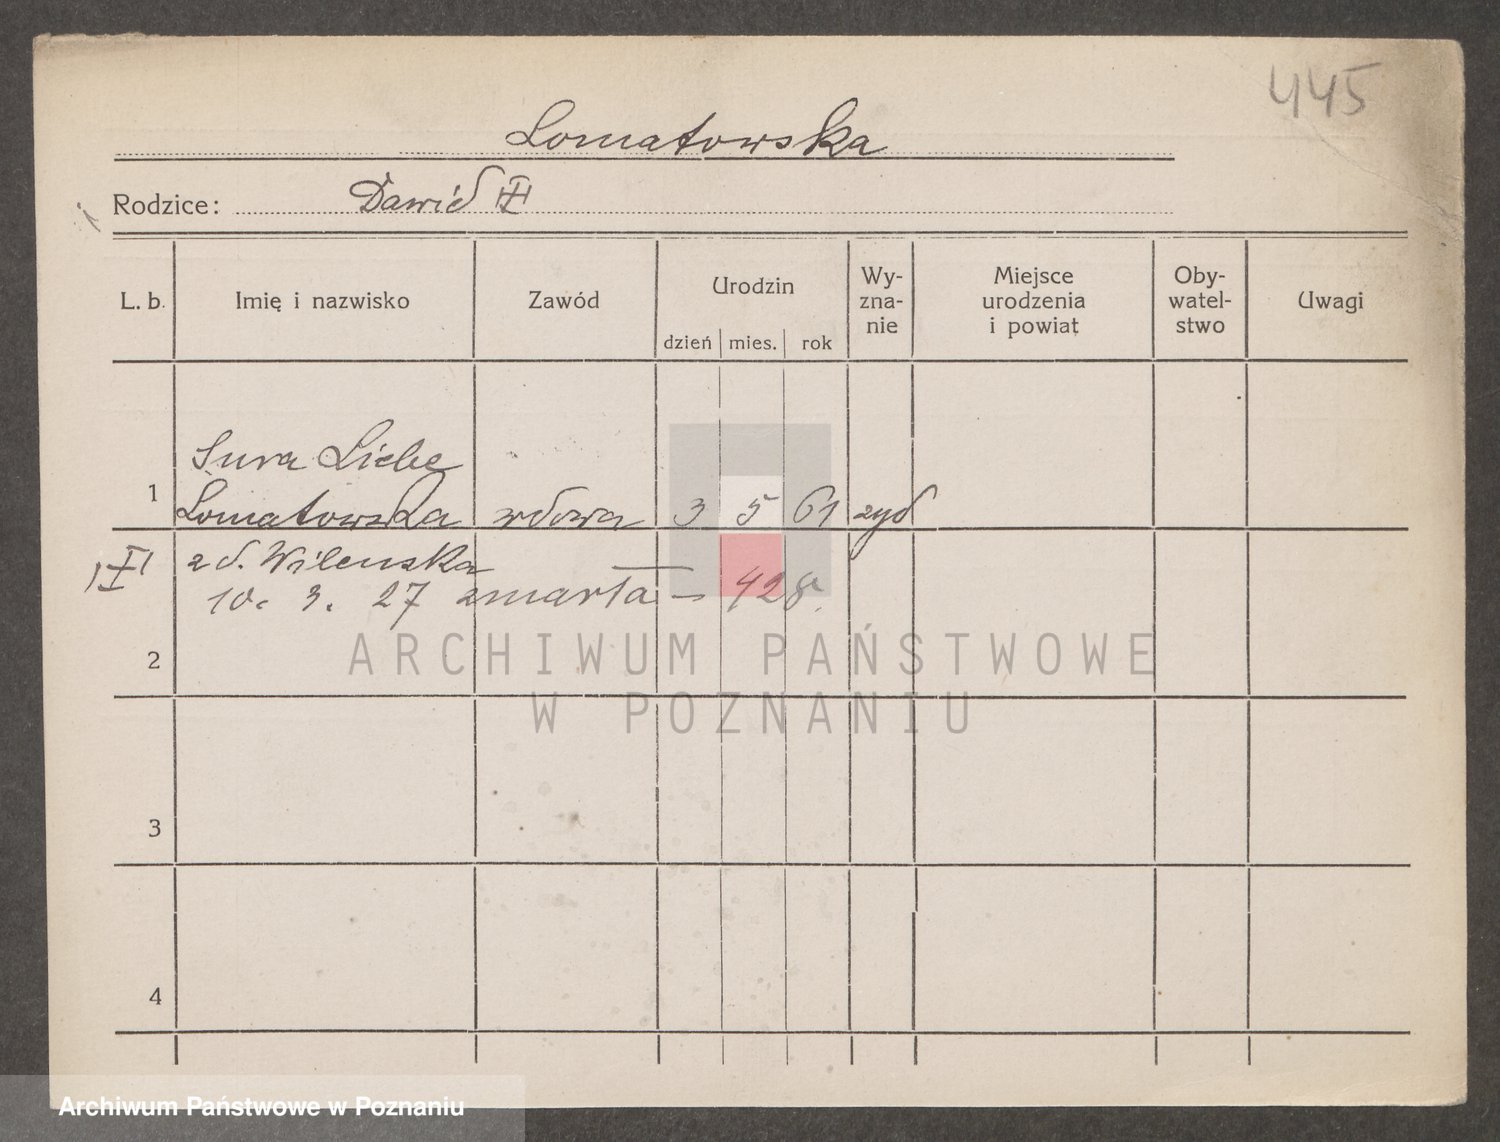 445
Lomatowska
Rodzice: Dawid III
L. b. Imię i nazwisko Zawód Urodzin dzień mies. rok Wy-zna-nie Miejsce urodzenia i powiat Oby-watel-stwo Uwagi
Sura Liebe
1 Lomatowska wdowa 3 5 61 żyd
z d. Wilenska
10. 3. 27 zmarła — 428
2
3
4
ARCHIWUM PAŃSTWOWE
W POZNANIU
Archiwum Państwowe w Poznaniu